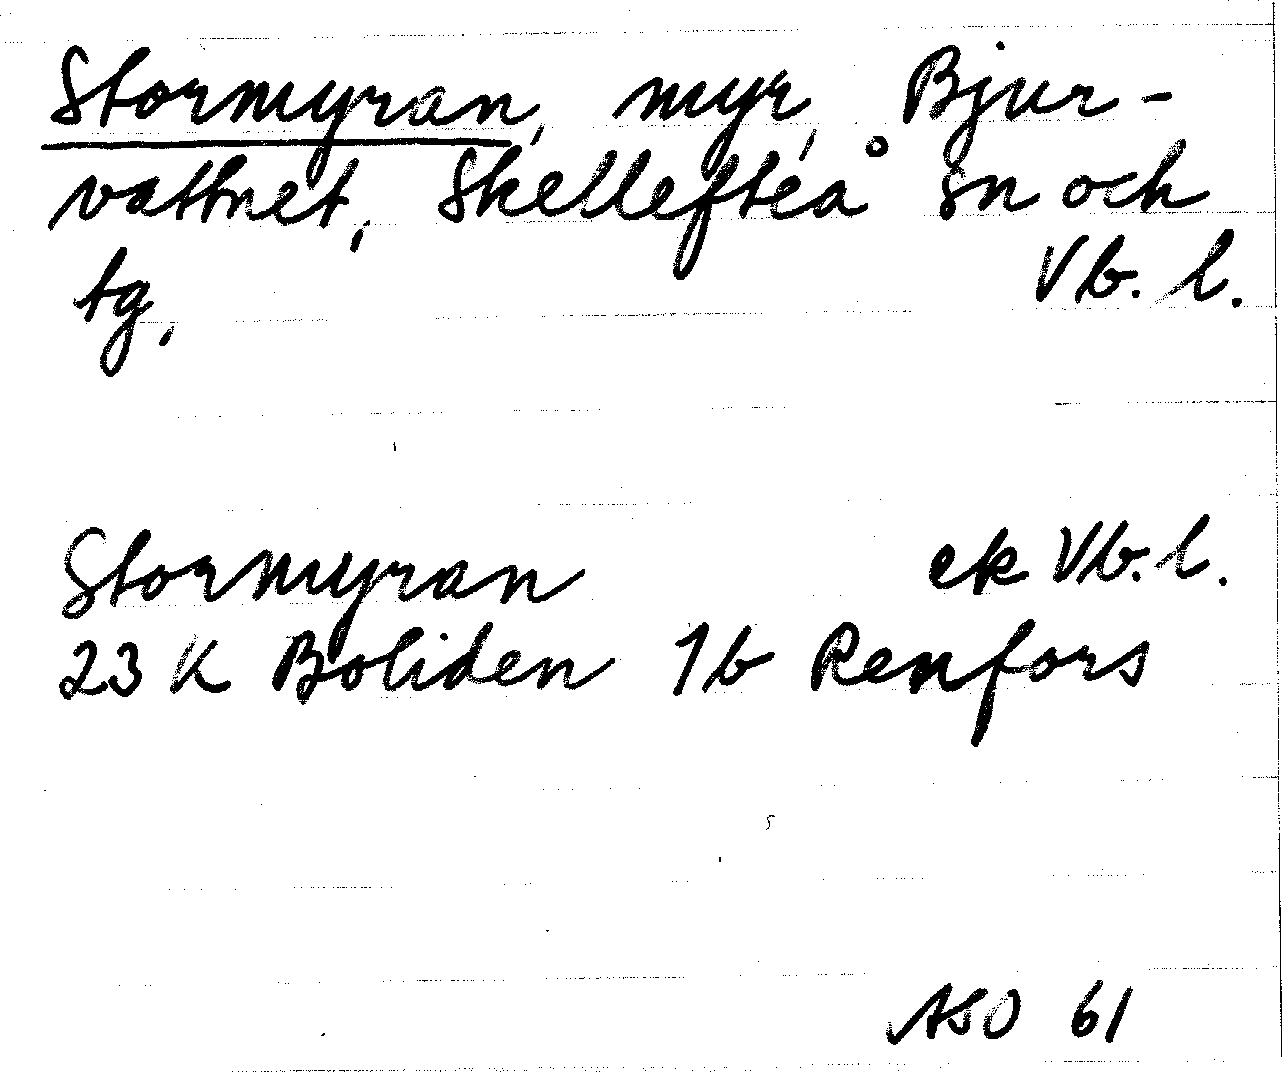 Stormyran, myr, Bjur-
vattnet, Skellefteå sn och
tg, Vb. l.
Stormyran ek Vb. l.
23 K Boliden 1b Renfors
ASO 61